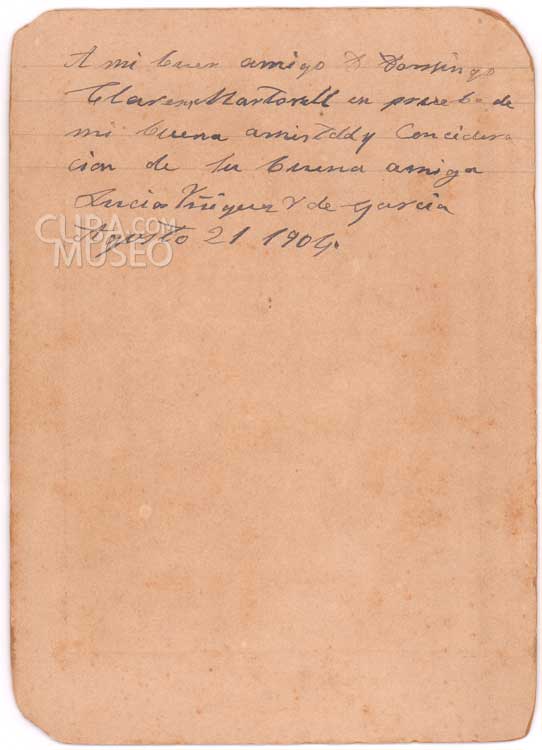 A mi buen amigo D Domingo
Clarens Martorell en prueba de
mi buena amistddy Concidera
cion de tu buena amiga
Lucia Yñiguez V de Garcia
Agosto 21 1904.
CUBA.COM
MUSEO